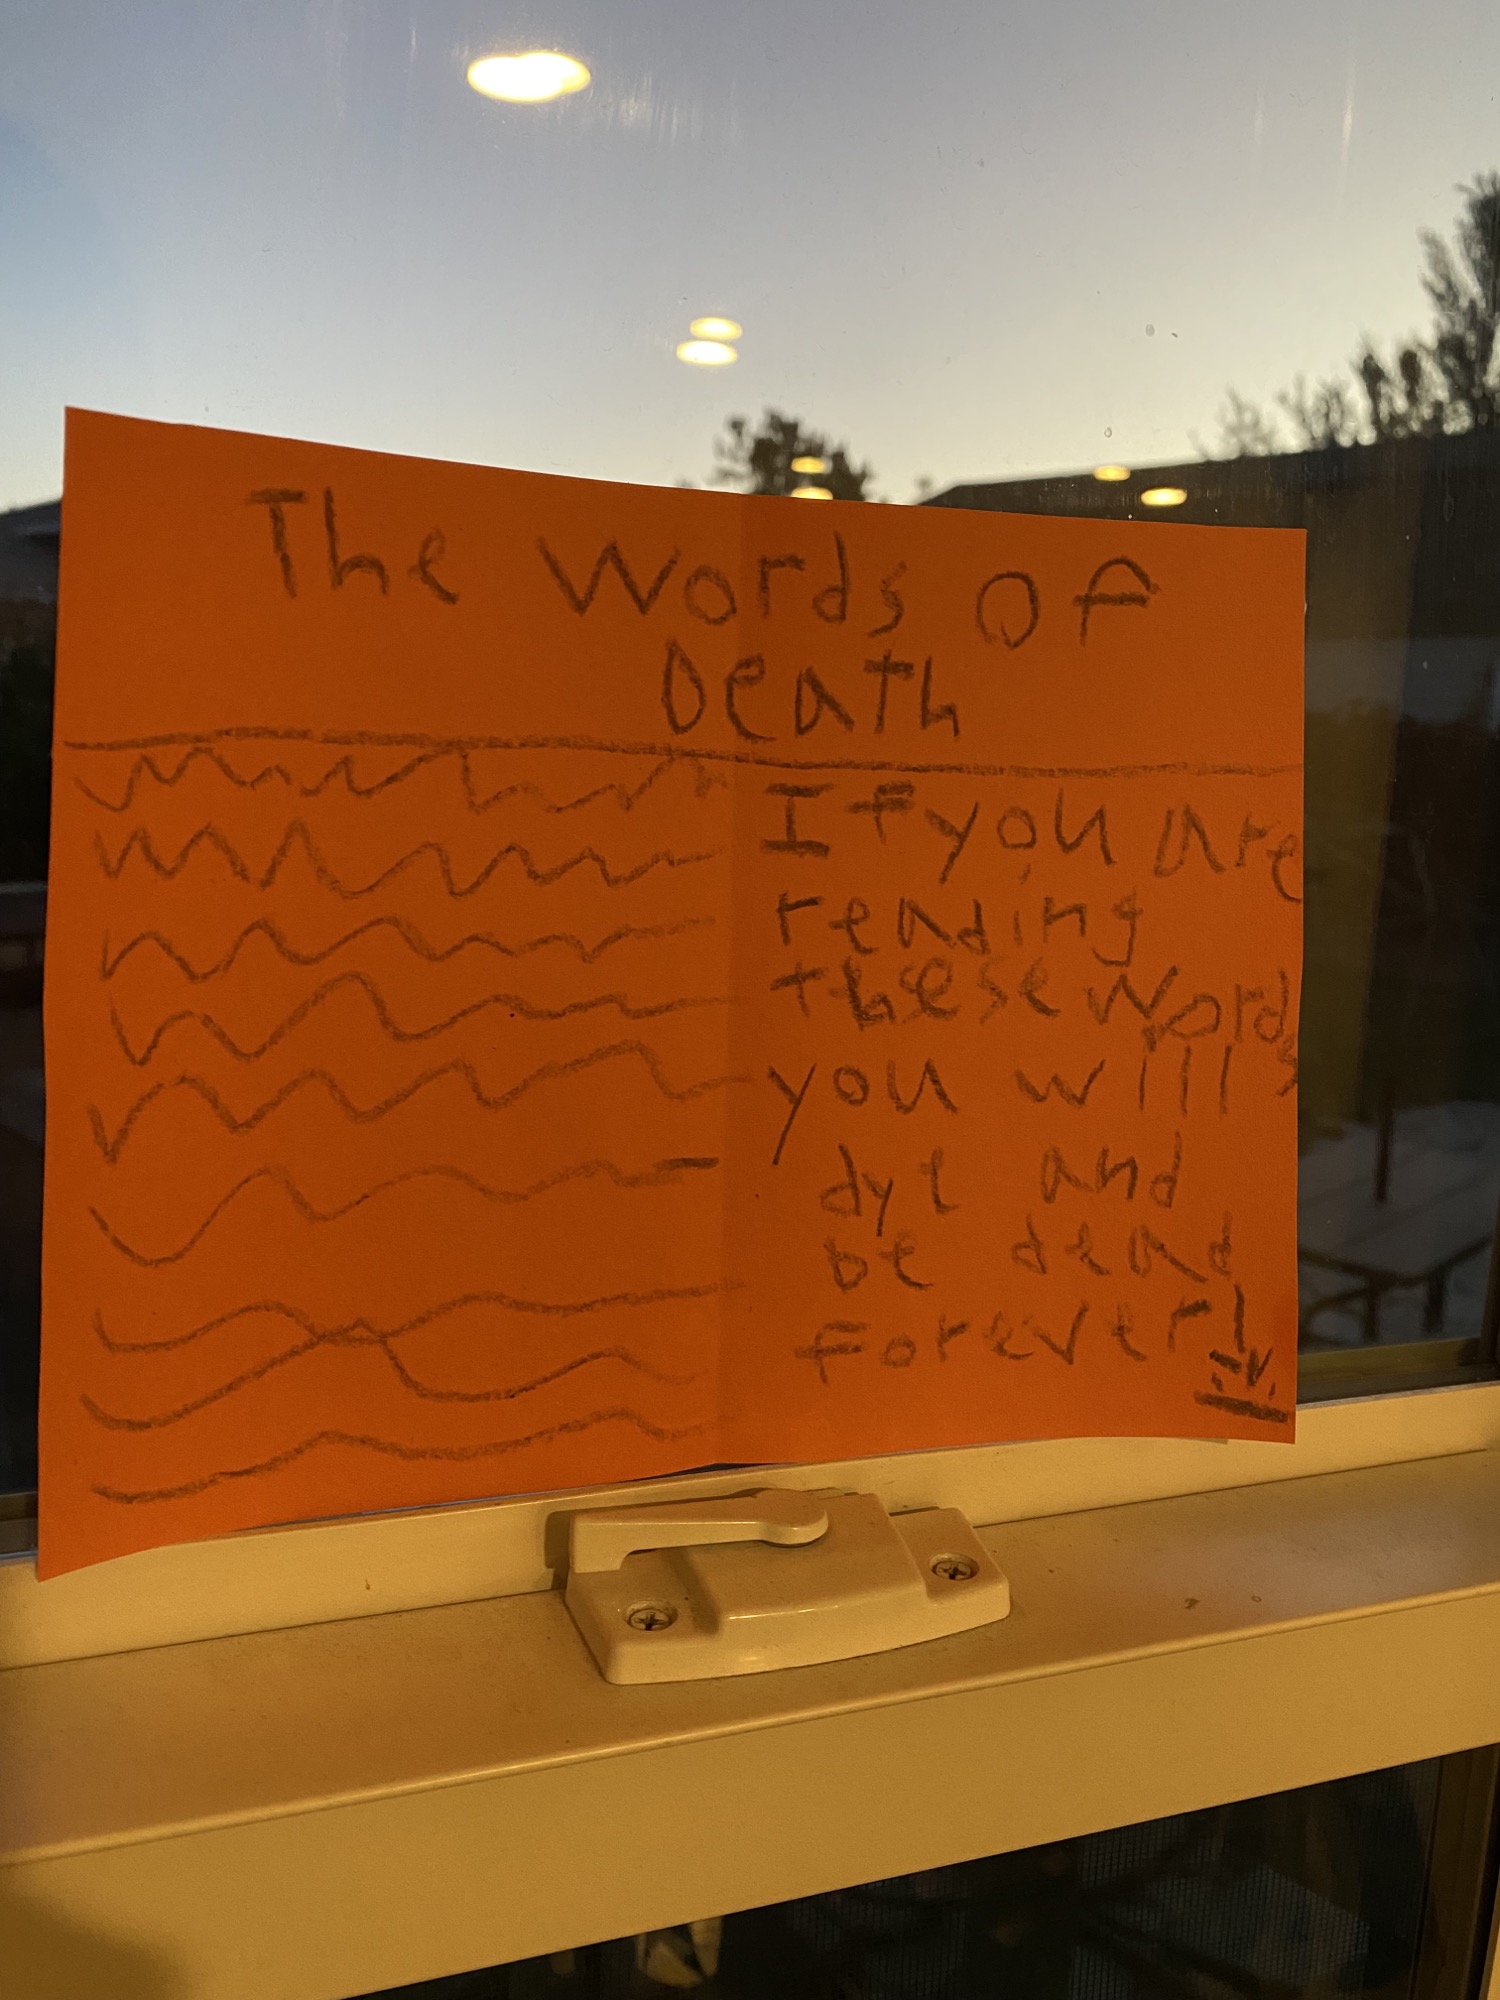 The Words of
Death
If you are
reading
these Words
you will
dye and
be dead
forever!